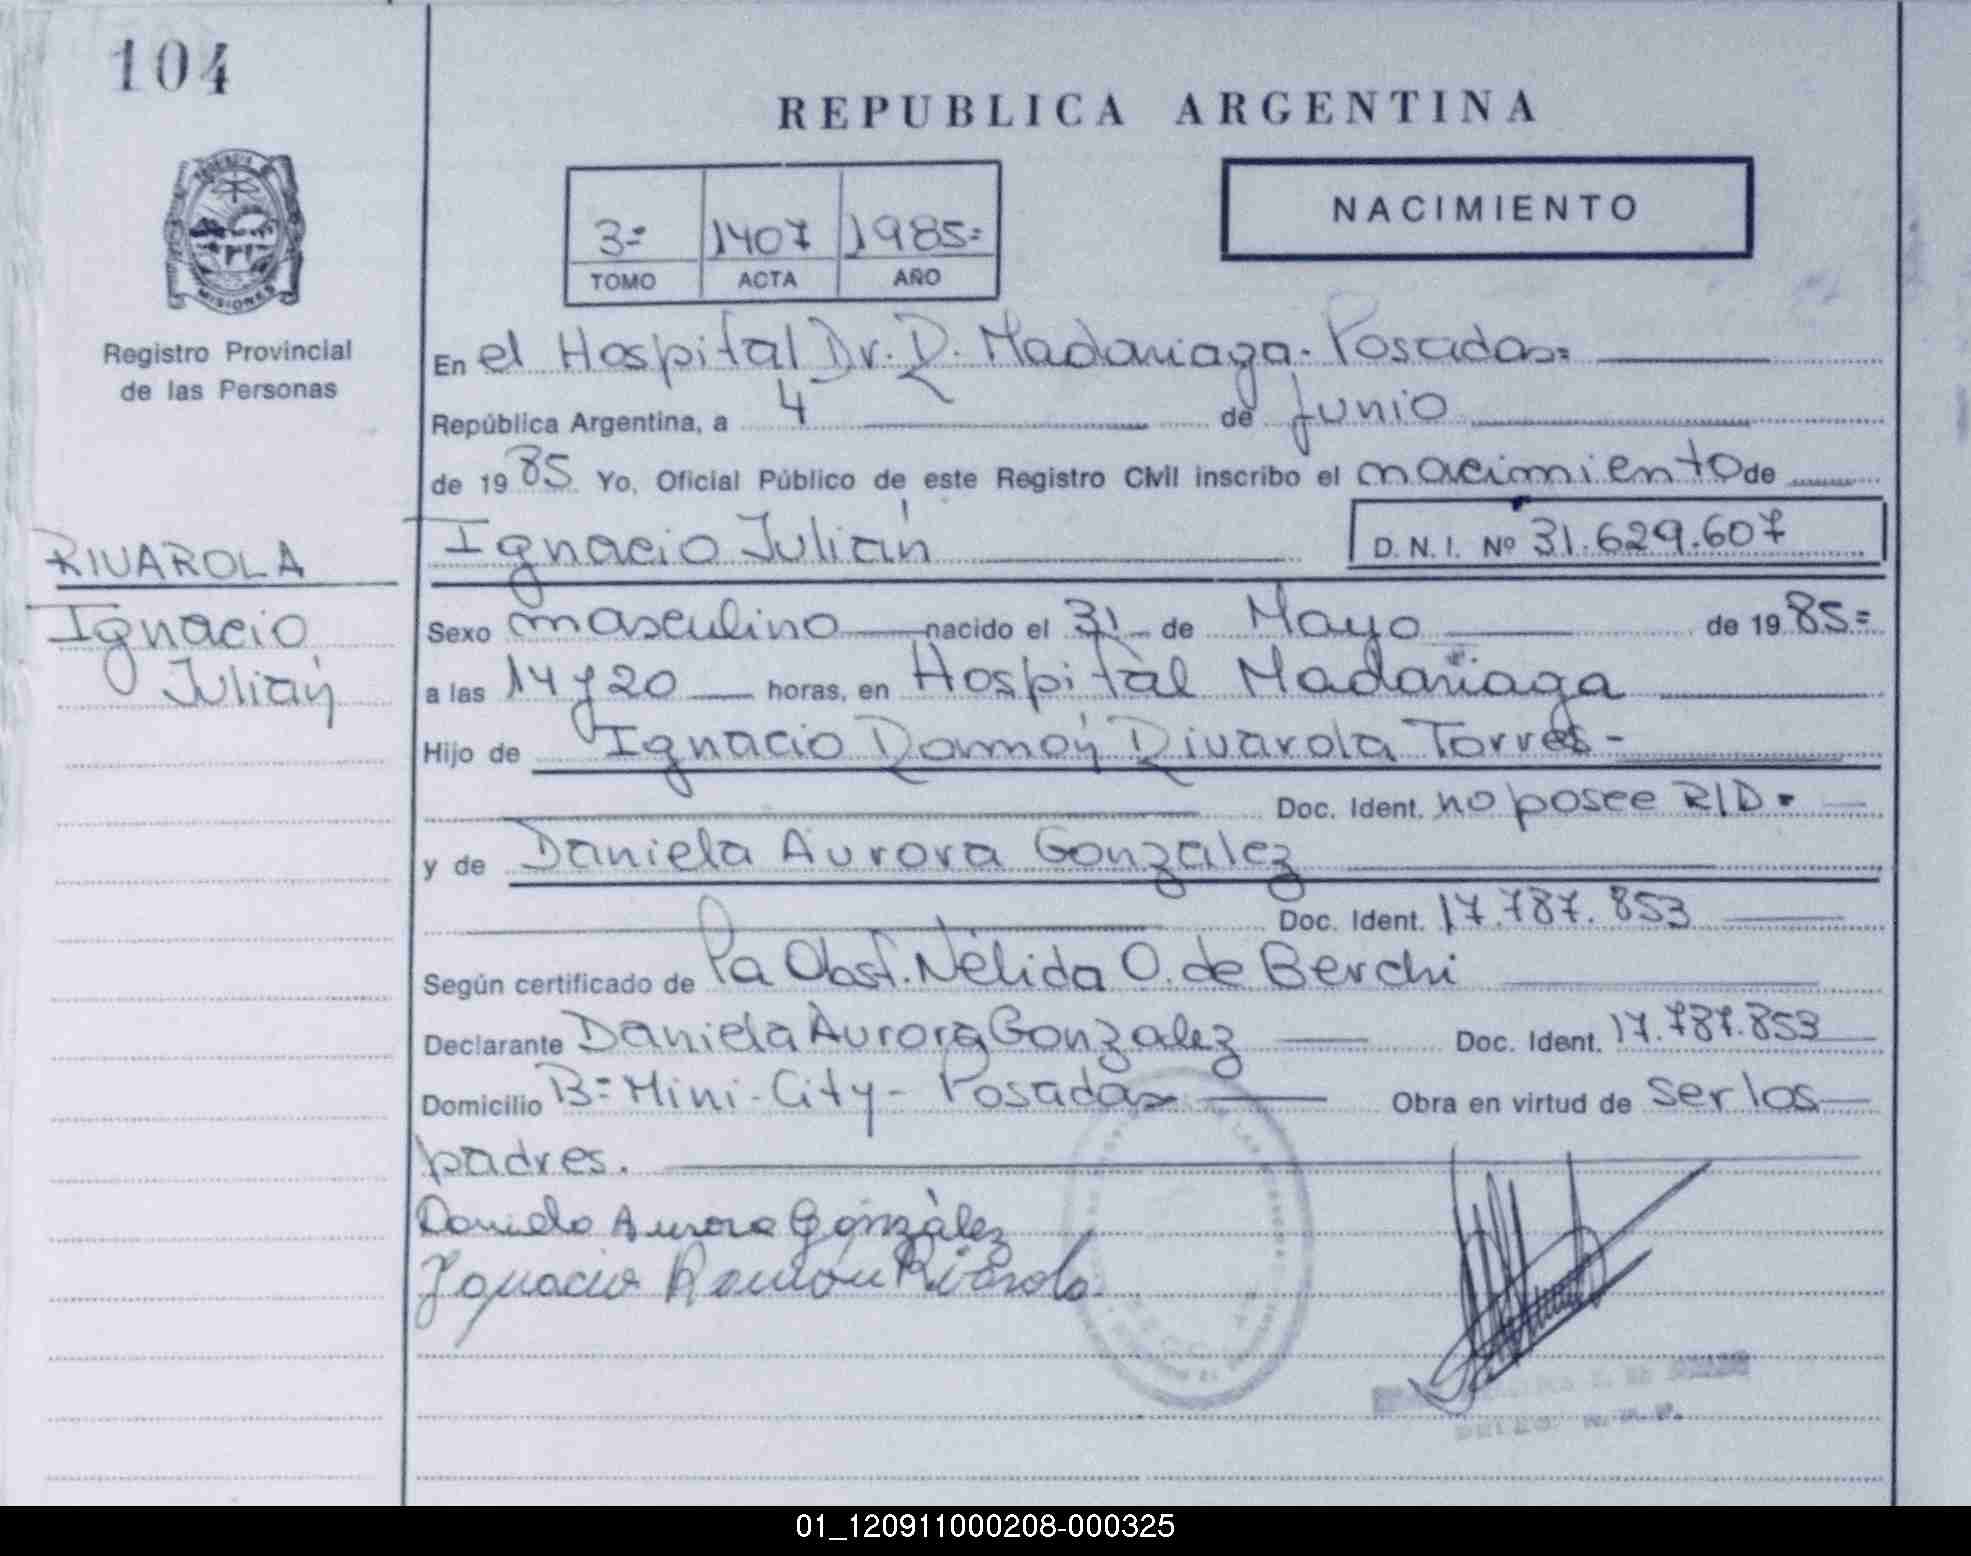 104
REPUBLICA ARGENTINA
NACIMIENTO
3º 1407 1985=
TOMO ACTA AÑO
MISIONES
Registro Provincial
de las Personas
En el Hospital Dr. R. Madariaga - Posadas=
República Argentina, a 4 de Junio
de 1985 Yo, Oficial Público de este Registro Civil inscribo el nacimiento de
RIVAROLA
Ignacio
Julián
Ignacio Julián
D.N.I. Nº 31.629.607
Sexo masculino nacido el 31 de Mayo de 1985=
a las 14 y 20 horas, en Hospital Madariaga
Hijo de Ignacio Ramón Rivarola Torres-
Doc. Ident. no posee R/D.
y de Daniela Aurora Gonzalez
Doc. Ident. 17.787.853
Según certificado de la Obst. Nélida O. de Berchi
Declarante Daniela Aurora Gonzalez Doc. Ident. 17.787.853
Domicilio Bº Mini-City - Posadas Obra en virtud de ser los
padres.
Daniela Aurora González
Ignacio Ramón Rivarola
01_120911000208-000325